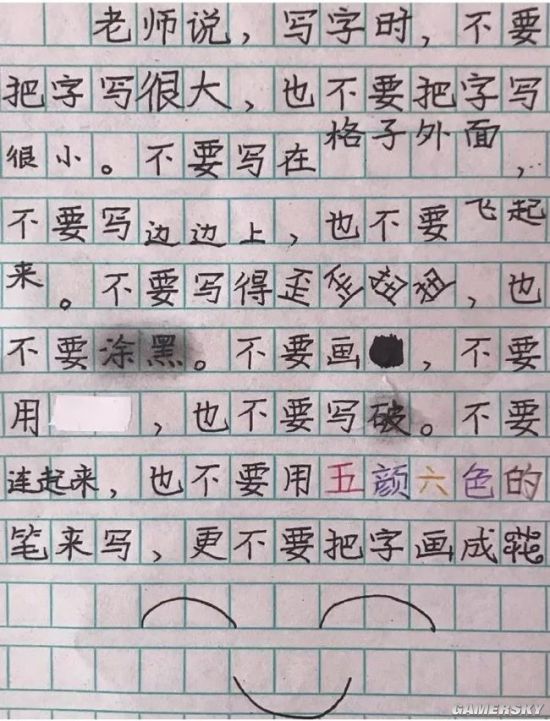 老师说，写字时，不要
把字写很大，也不要把字写
很小。不要写在格子外面，
不要写边边上，也不要飞起
来。不要写得歪歪歪歪，也
不要涂黑。不要画，不要
用，也不要写破。不要
连起来，也不要用五颜六色的
笔来写，更不要把字画成花
GAMERSKY